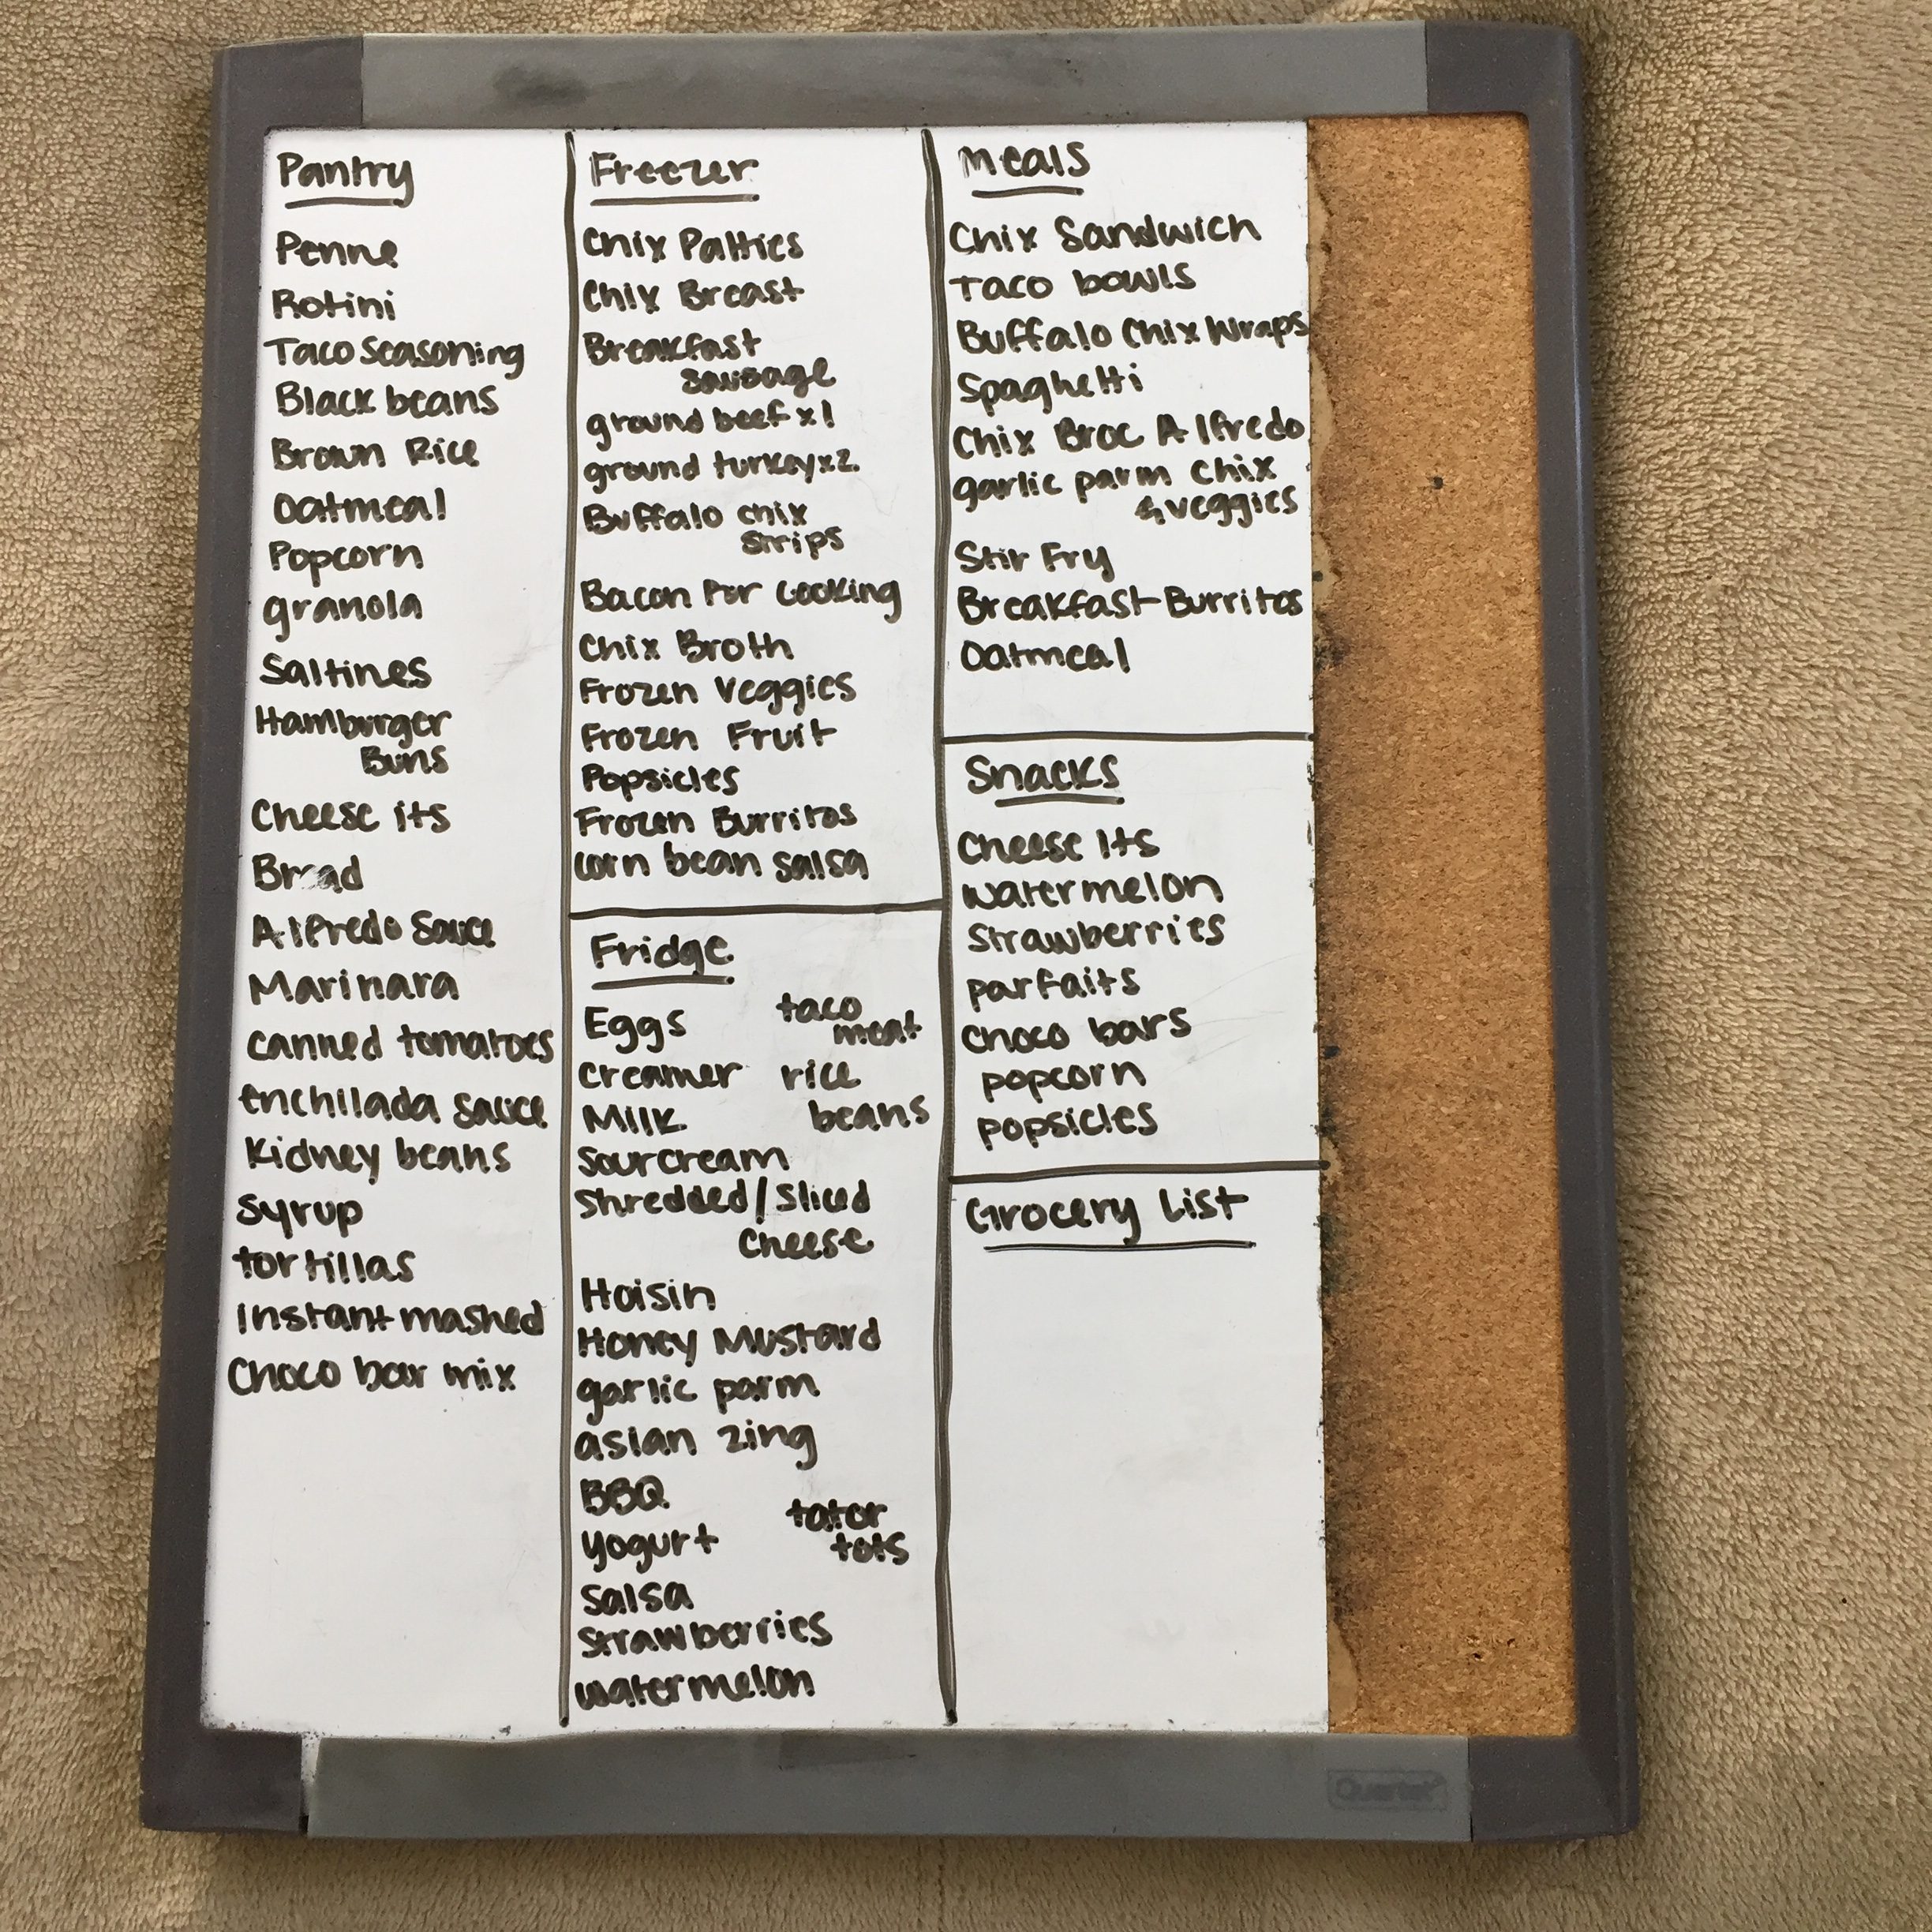 Pantry
Penne
Rotini
Taco Seasoning
Black beans
Brown Rice
Oatmeal
Popcorn
granola
Saltines
Hamburger
Buns
Cheese its
Bread
Alfredo Sauce
Marinara
canned tomatoes
enchilada sauce
Kidney beans
Syrup
tortillas
Instant mashed
Choco bar mix
Freezer
Chix Patties
Chix Breast
Breakfast
Sausage
ground beef x1
ground turkey x2
Buffalo chix
Strips
Bacon for cooking
Chix Broth
Frozen Veggies
Frozen Fruit
Popsicles
Frozen Burritos
corn bean salsa
Fridge
Eggs
creamer
Milk
Sourcream
Shredded/Sliced
Cheese
taco
meat
rice
beans
Hoisin
Honey Mustard
garlic parm
asian zing
BBQ
Yogurt
tator
tots
Salsa
Strawberries
watermelon
Meals
Chix Sandwich
Taco bowls
Buffalo Chix Wraps
Spaghetti
Chix Broc Alfredo
garlic parm chix
& veggies
Stir Fry
Breakfast Burritos
Oatmeal
Snacks
Cheese Its
watermelon
Strawberries
parfaits
Choco bars
popcorn
popsicles
Grocery List
Quartet